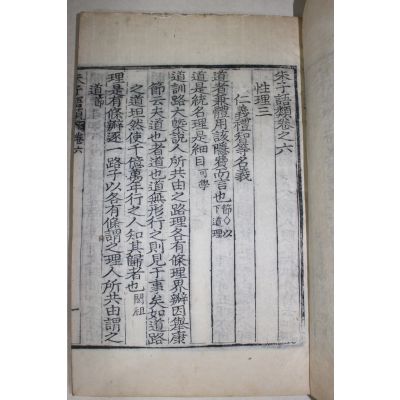 朱子語類卷之六
性理三
仁義禮知等名義
道者兼體用該隱費而言也節○以下道理
道是統名理是細目可學
道訓路大槩說人所共由之路理各有條理界瓣因舉康
節云夫道也者道也道無形行之則見于事矣如道路
之道坦然使千億萬年行之人知其歸者也閎祖
理是有條瓣逐一路子以各有條謂之理人所共由謂之
道節
朱子語類卷六